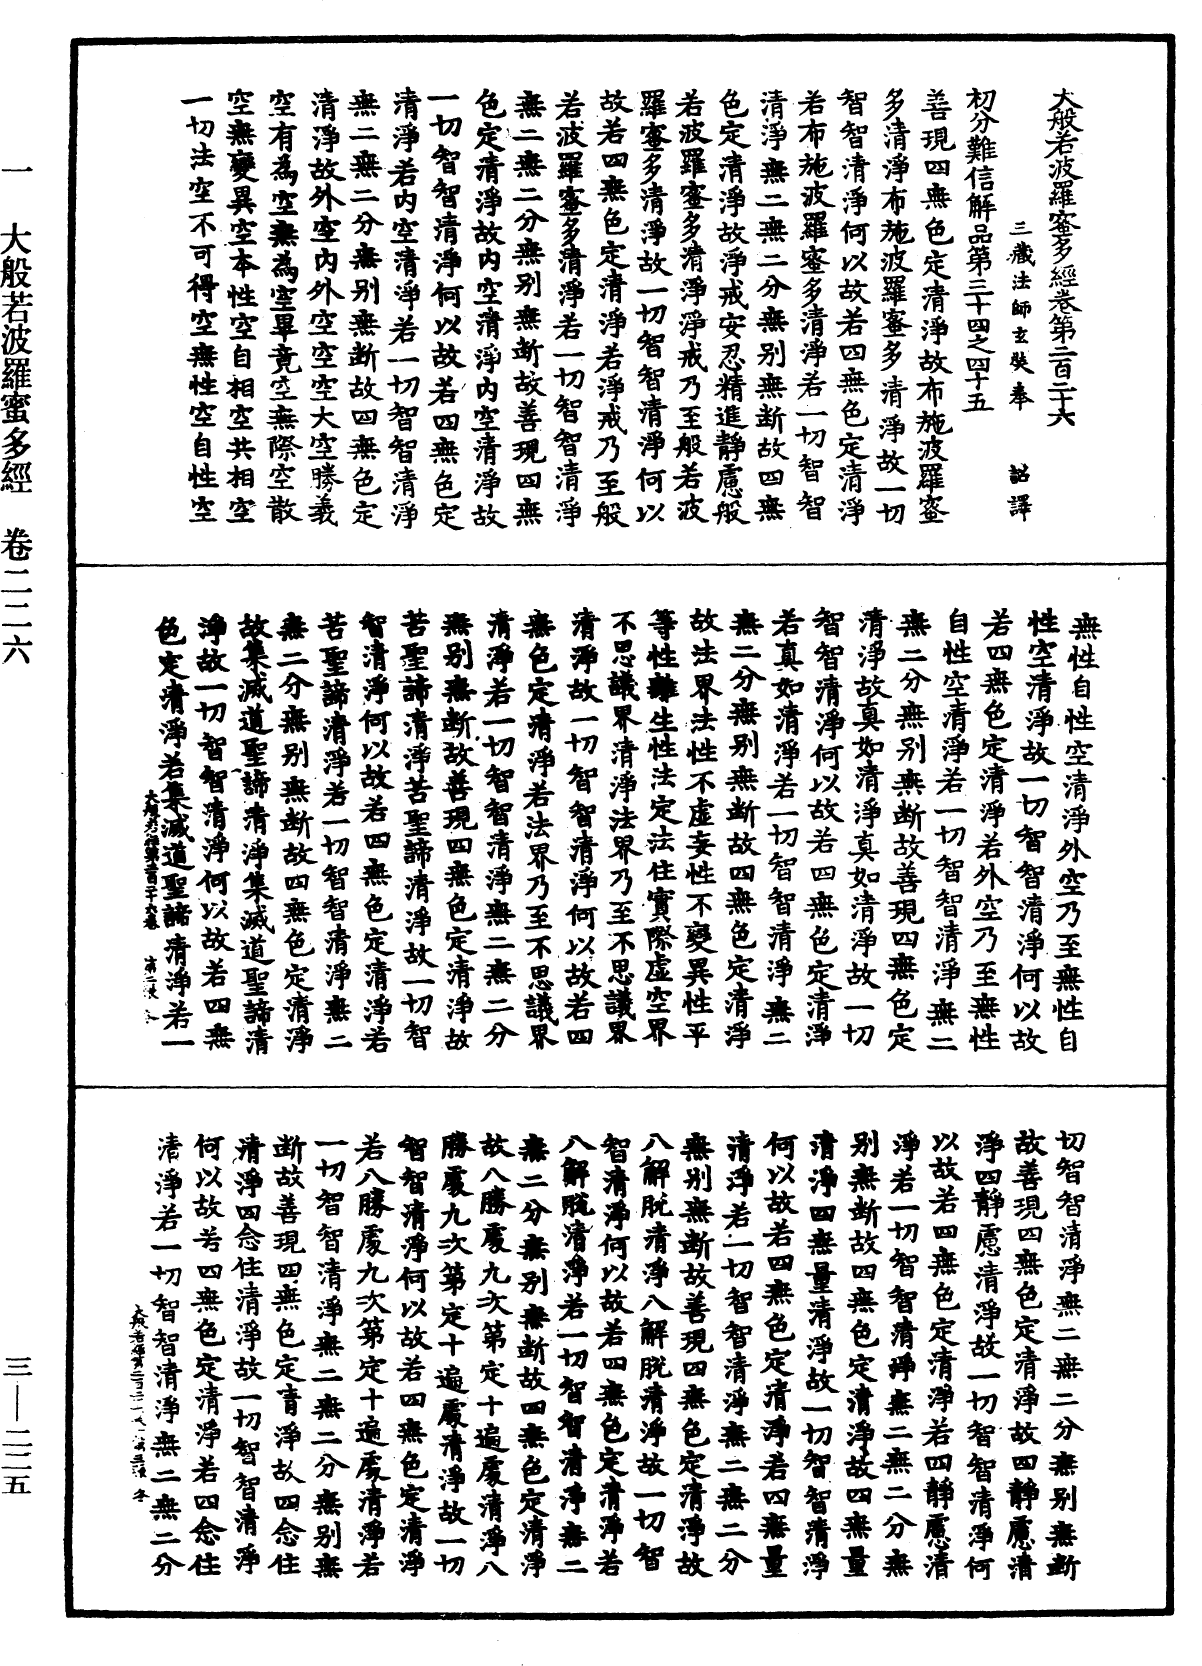 大般若波羅蜜多經卷第二百二十六
三藏法師玄奘奉 詔譯
初分難信解品第三十四之四十五
善現四無色定清淨故布施波羅蜜
多清淨布施波羅蜜多清淨故一切
智智清淨何以故若四無色定清淨
若布施波羅蜜多清淨若一切智智
清淨無二無二分無別無斷故四無
色定清淨故淨戒安忍精進靜慮般
若波羅蜜多清淨淨戒乃至般若波
羅蜜多清淨故一切智智清淨何以
故若四無色定清淨若淨戒乃至般
若波羅蜜多清淨若一切智智清淨
無二無二分無別無斷故善現四無
色定清淨故內空清淨內空清淨故
一切智智清淨何以故若四無色定
清淨若內空清淨若一切智智清淨
無二無二分無別無斷故四無色定
清淨故外空內外空空空大空勝義
空有為空無為空畢竟空無際空散
空無變異空本性空自相空共相空
一切法空不可得空無性空自性空
無性自性空清淨外空乃至無性自
性空清淨故一切智智清淨何以故
若四無色定清淨若外空乃至無性
自性空清淨若一切智智清淨無二
無二分無別無斷故善現四無色定
清淨故真如清淨真如清淨故一切
智智清淨何以故若四無色定清淨
若真如清淨若一切智智清淨無二
無二分無別無斷故四無色定清淨
故法界法性不虛妄性不變異性平
等性離生性法定法住實際虛空界
不思議界清淨法界乃至不思議界
清淨故一切智智清淨何以故若四
無色定清淨若法界乃至不思議界
清淨若一切智智清淨無二無二分
無別無斷故善現四無色定清淨故
苦聖諦清淨苦聖諦清淨故一切智
智清淨何以故若四無色定清淨若
苦聖諦清淨若一切智智清淨無二
無二分無別無斷故四無色定清淨
故集滅道聖諦清淨集滅道聖諦清
淨故一切智智清淨何以故若四無
色定清淨若集滅道聖諦清淨若一
切智智清淨無二無二分無別無斷
故善現四無色定清淨故四靜慮清
淨四靜慮清淨故一切智智清淨何
以故若四無色定清淨若四靜慮清
淨若一切智智清淨無二無二分無
別無斷故四無色定清淨故四無量
清淨四無量清淨故一切智智清淨
何以故若四無色定清淨若四無量
清淨若一切智智清淨無二無二分
無別無斷故善現四無色定清淨故
八解脫清淨八解脫清淨故一切智
智清淨何以故若四無色定清淨若
八解脫清淨若一切智智清淨無二
無二分無別無斷故四無色定清淨
故八勝處九次第定十遍處清淨八
勝處九次第定十遍處清淨故一切
智智清淨何以故若四無色定清淨
若八勝處九次第定十遍處清淨若
一切智智清淨無二無二分無別無
斷故善現四無色定清淨故四念住
清淨四念住清淨故一切智智清淨
何以故若四無色定清淨若四念住
清淨若一切智智清淨無二無二分
一 大般若波羅蜜多經 卷二二六
三—二二五